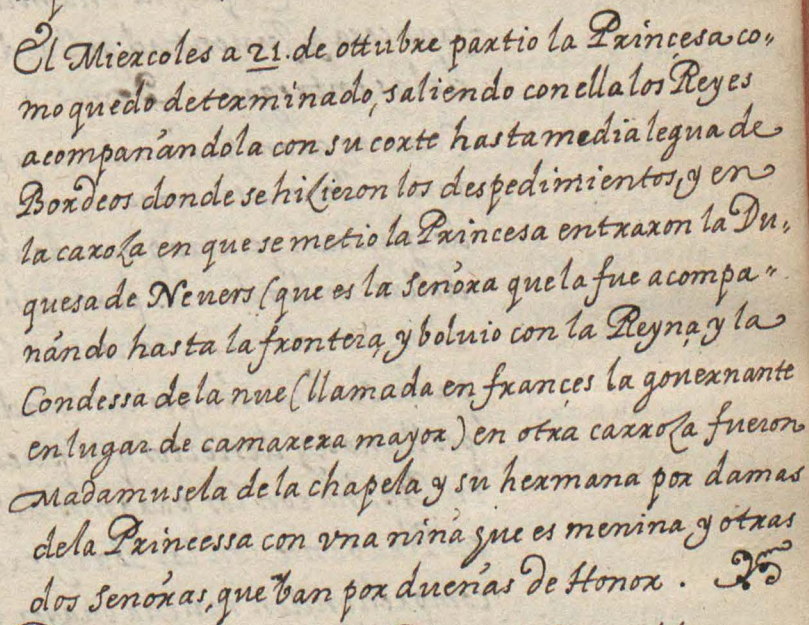 El Miercoles a 21. de ottubre partio la Princesa co-
mo quedo determinado, saliendo con ella los Reyes
acompañandola con su corte hasta media legua de
Bordeos donde se hiZieron los despedimientos, y en
la caroza en que se metio la Princesa entraron la Du-
quesa de Nevers (que es la señora que la fue acompa-
ñando hasta la frontera, y boluio con la Reyna, y la
Condessa de la nue (llamada en françes la governante
en lugar de camarera mayor) en otra carroza fueron
Madamusela de la chapela y su hermana por damas
de la Princessa con vna niña que es menina y otras
dos señoras, que van por dueñas de Honor.